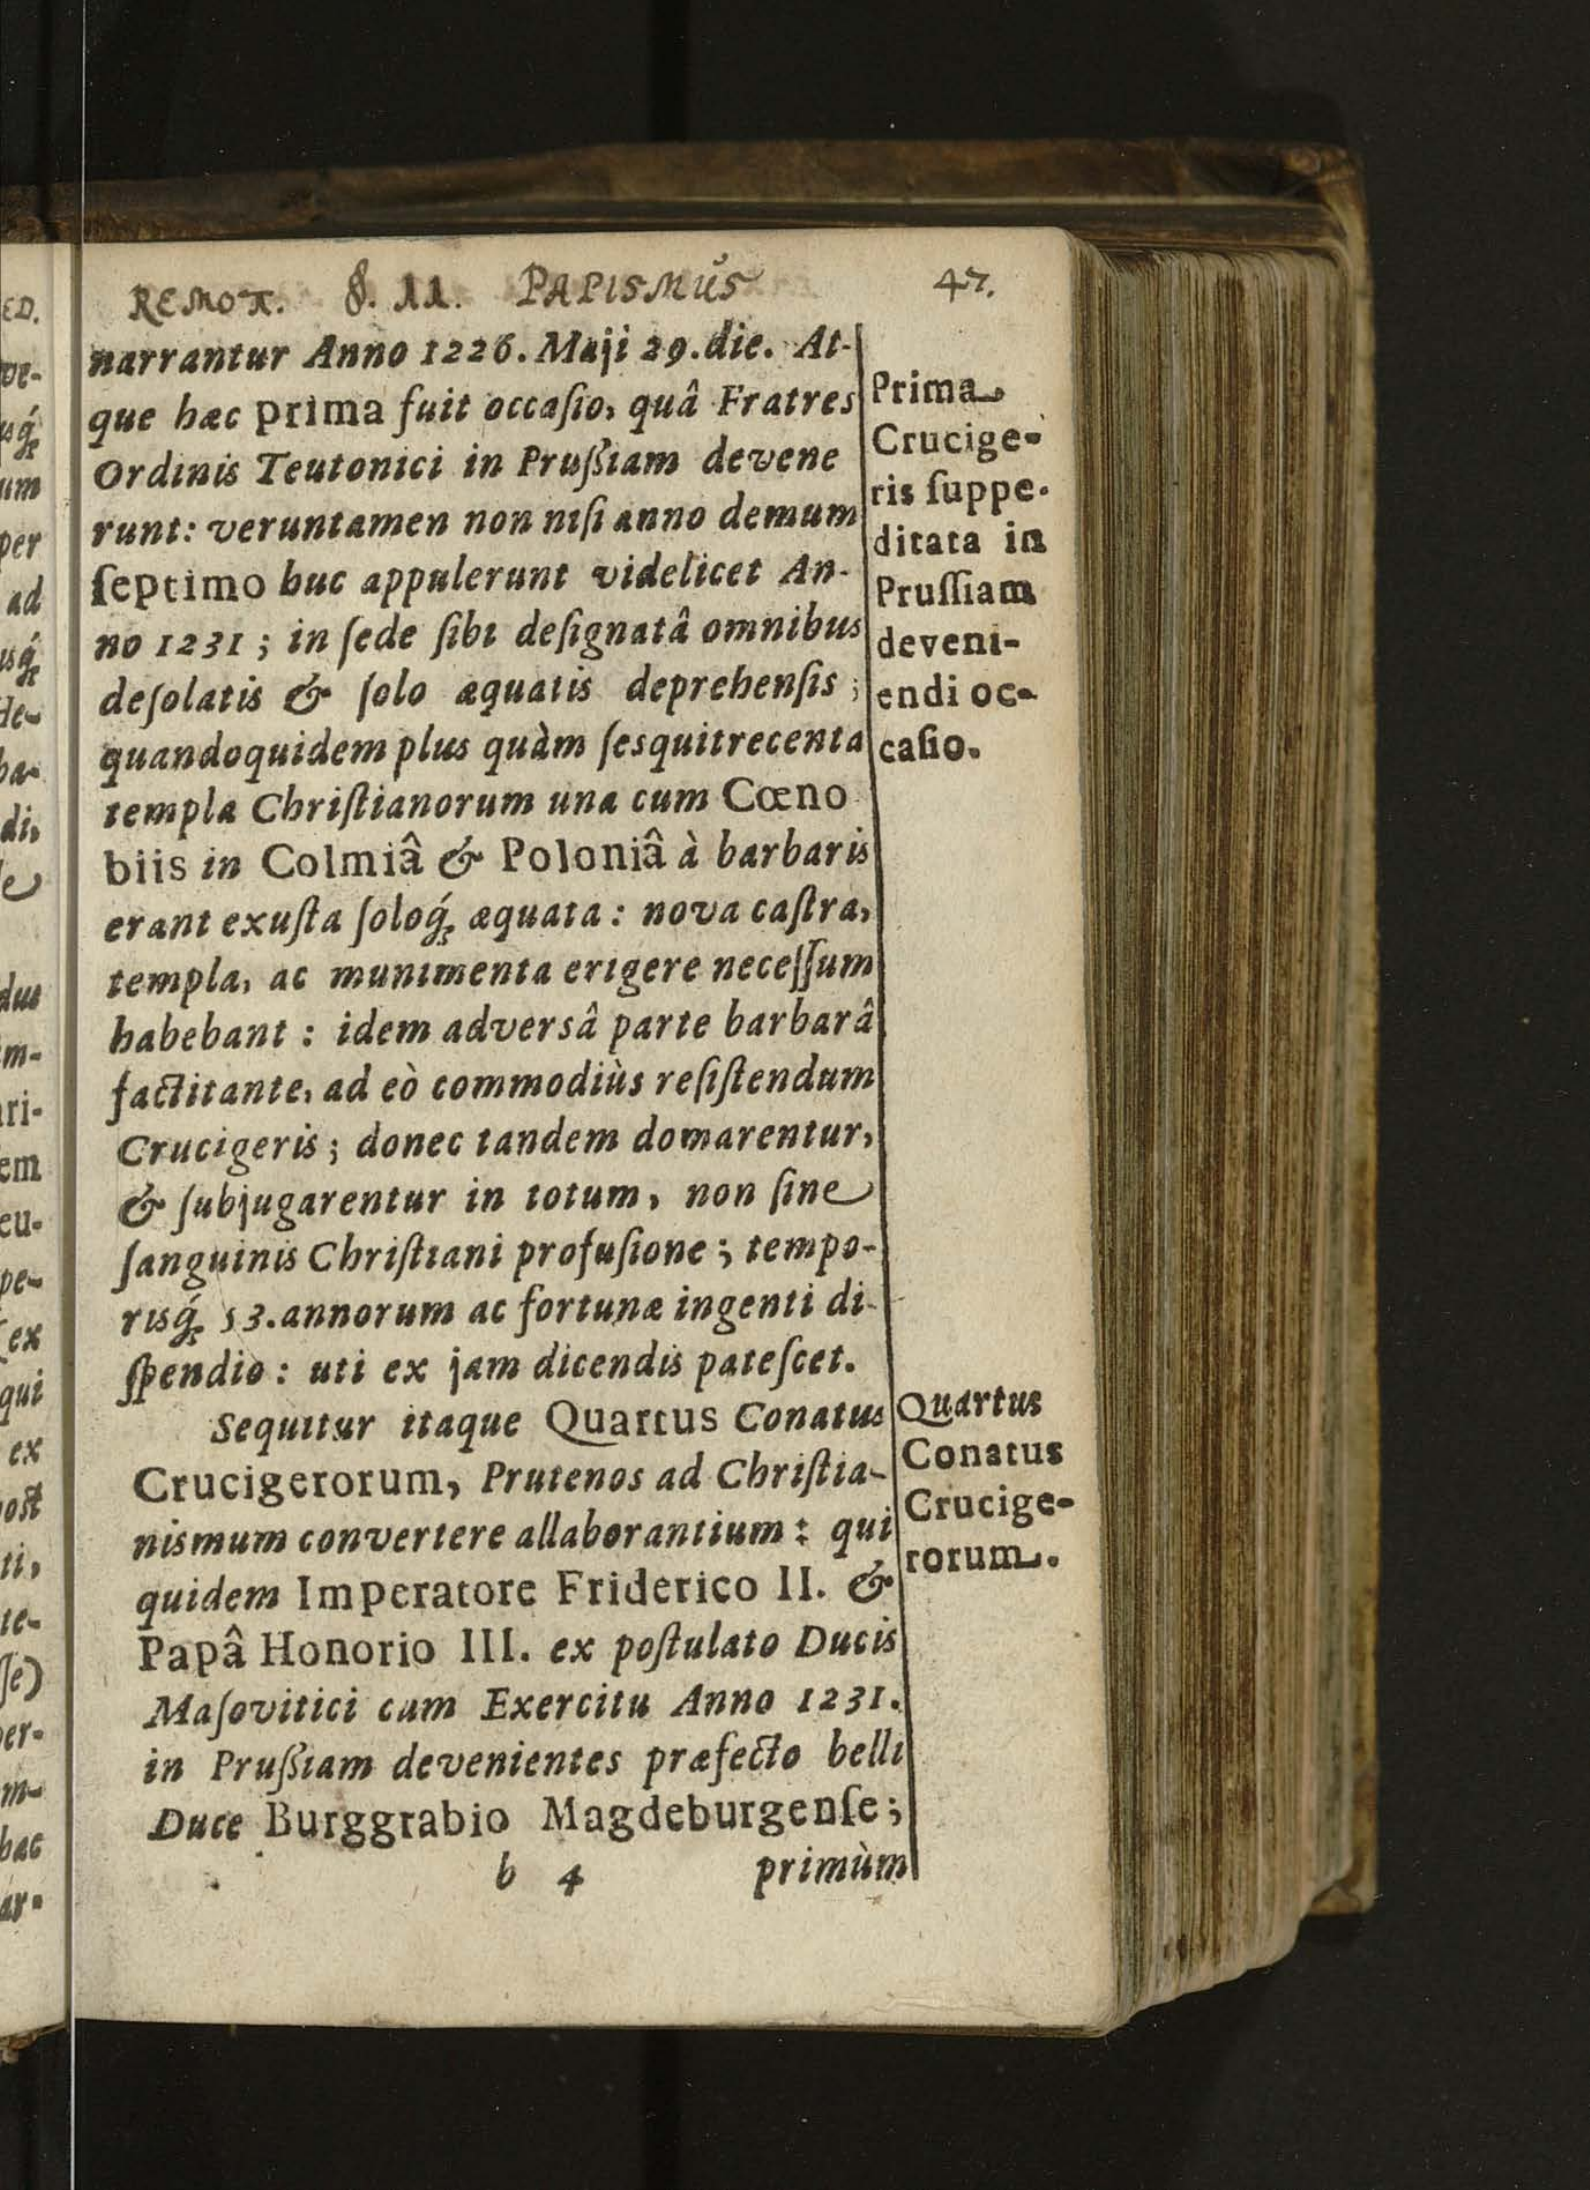 REMOT. §. 11. PAPISMUS 47.
narrantur Anno 1226. Maji 29. die. At-
que hæc prima fuit occaſio, quâ Fratres
Ordinis Teutonici in Prußiam devene
runt: veruntamen non niſi anno demum
ſeptimo huc appulerunt videlicet An-
no 1231; in ſede ſibi deſignatâ omnibus
deſolatis & ſolo æquatis deprehenſis;
quandoquidem plus quàm ſesquitrecenta
templa Chriſtianorum una cum Cœno
biis in Colmiâ & Poloniâ à barbaris
erant exuſta ſoloq́; æquata: nova caſtra,
templa, ac munimenta erigere neceſſum
habebant: idem adversâ parte barbarâ
factitante, ad eò commodiùs reſiſtendum
Crucigeris; donec tandem domarentur,
& ſubjugarentur in totum, non ſine
ſanguinis Chriſtiani profuſione; tempo-
risq́; 53. annorum ac fortunæ ingenti di-
ſpendio: uti ex jam dicendis pateſcet.
Sequitur itaque Quartus Conatus
Crucigerorum, Prutenos ad Chriſtia-
nismum convertere allaborantium: qui
quidem Imperatore Friderico II. &
Papâ Honorio III. ex poſtulato Ducis
Maſovitici cum Exercitu Anno 1231.
in Prußiam devenientes præfecto belli
Duce Burggrabio Magdeburgenſe;
b 4 primùm
Prima
Crucige-
ris ſuppe-
ditata in
Pruſſiam
deveni-
endi oc-
caſio.
Quartus
Conatus
Crucige-
rorum.